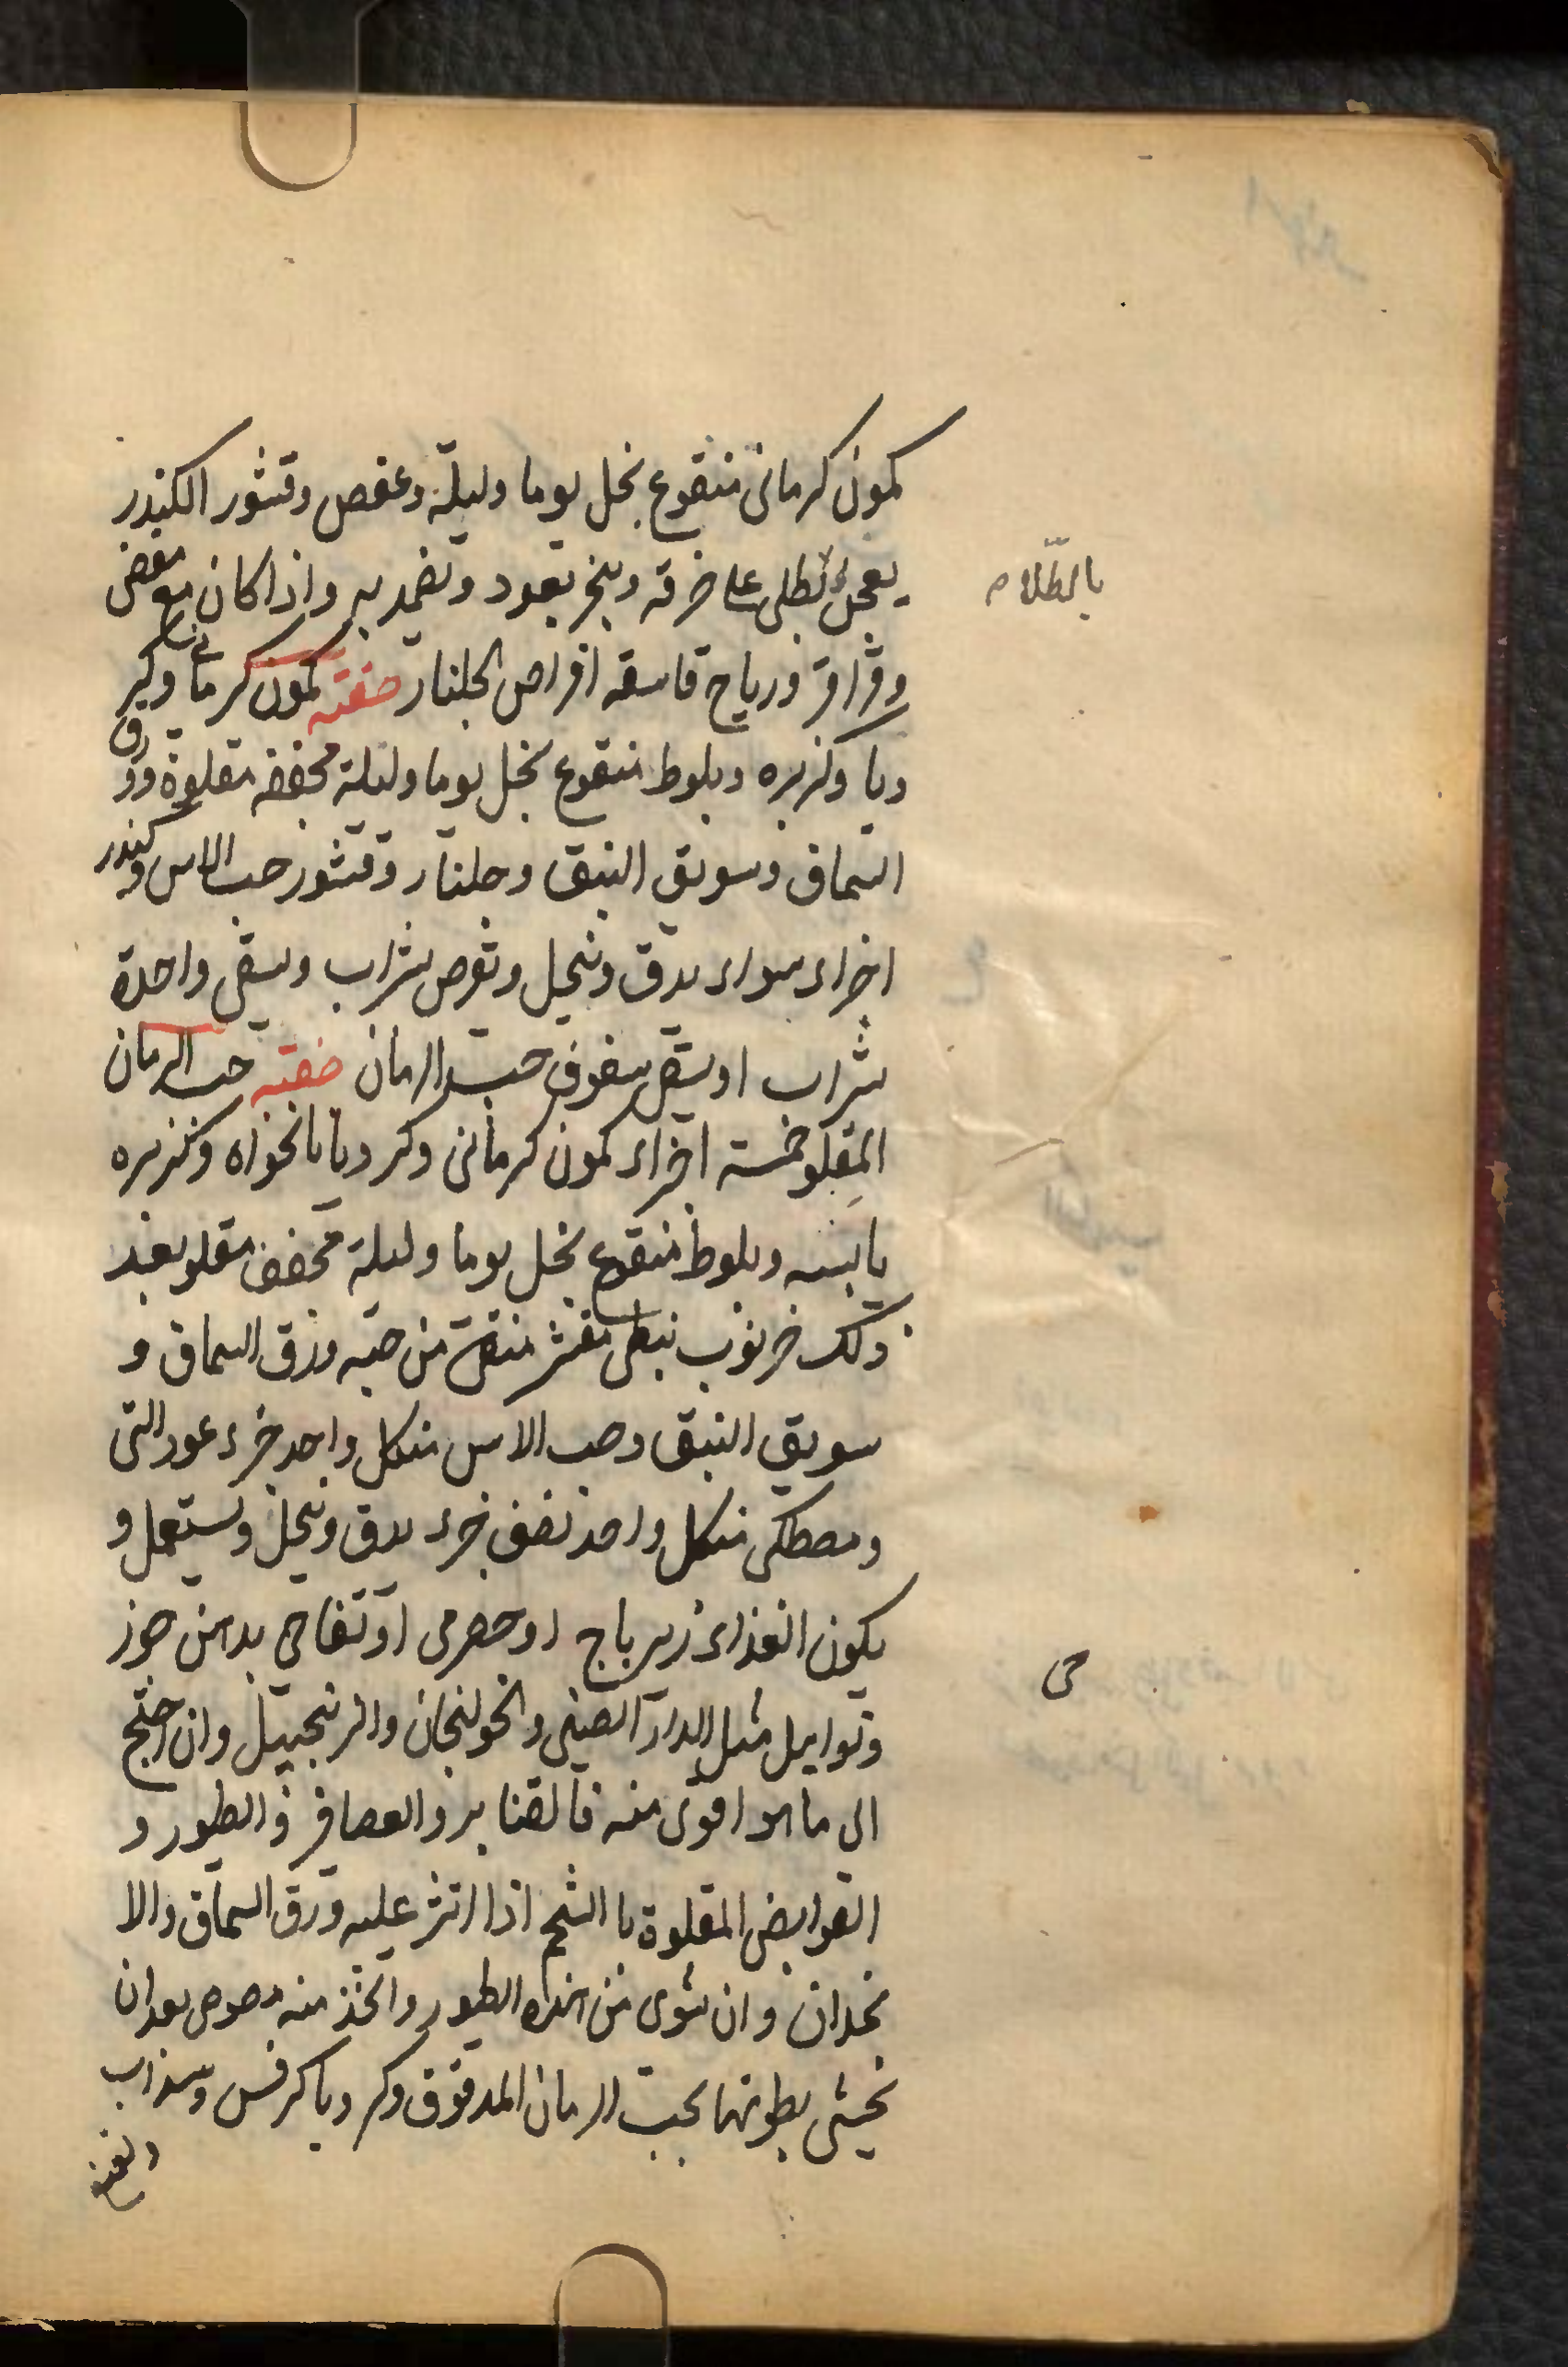 كمون كرمانى منقوع بخل يوما وليلة وعفص وقشور الكندر
يعجن ويطلى على خرقه ويبخر بعود وتضمد به واذا كان مع مغص
بالطلاء
وقراقر ورياح فاسقه اقراص الجلنار صفته كمون كرمانى وكر
ويا وكزبره وبلوط منقوع بخل يوما وليلة مجففه مقلوة وورق
السماق وسويق النبق وجلنار وقشور حب الاس وكندر
اجزاء سواء يدق وينخل ويقرص بشراب ويسقى واحدة
بشراب او يسقى سفوف حب الرمان صفته حب الرمان
المقلو خمسة اجزاء كمون كرمانى وكرويا نانخواه وكزبره
يابسه وبلوط منقوع بخل يوما وليلة مجفف مقلو بعد
ذلك خرنوب نبطى مقشر منقى من حبه ورق السماق و
سويق النبق وحب الاس من كل واحد جزء عود التى
ومصطكى من كل واحد نصف جزء يدق وينخل ويستعمل و
يكون الغذاء زيرباج او حصرمى او تفاحى بدهن جوز
وتوابيل مثل الدار الصينى والخولنجان والزنجبيل وان احتج
الى ما هو اقوى منه فالقنابر والعصافر والطيور و
القوابض المقلوة با الشحم اذا انثر عليه ورق السماق والا
نجدان وان شوى من هذه الطيور واتخذ منه مصوص بعد ان
تحشى بطونها بحب الرمان المدقوق وكرويا كرفس وسذاب